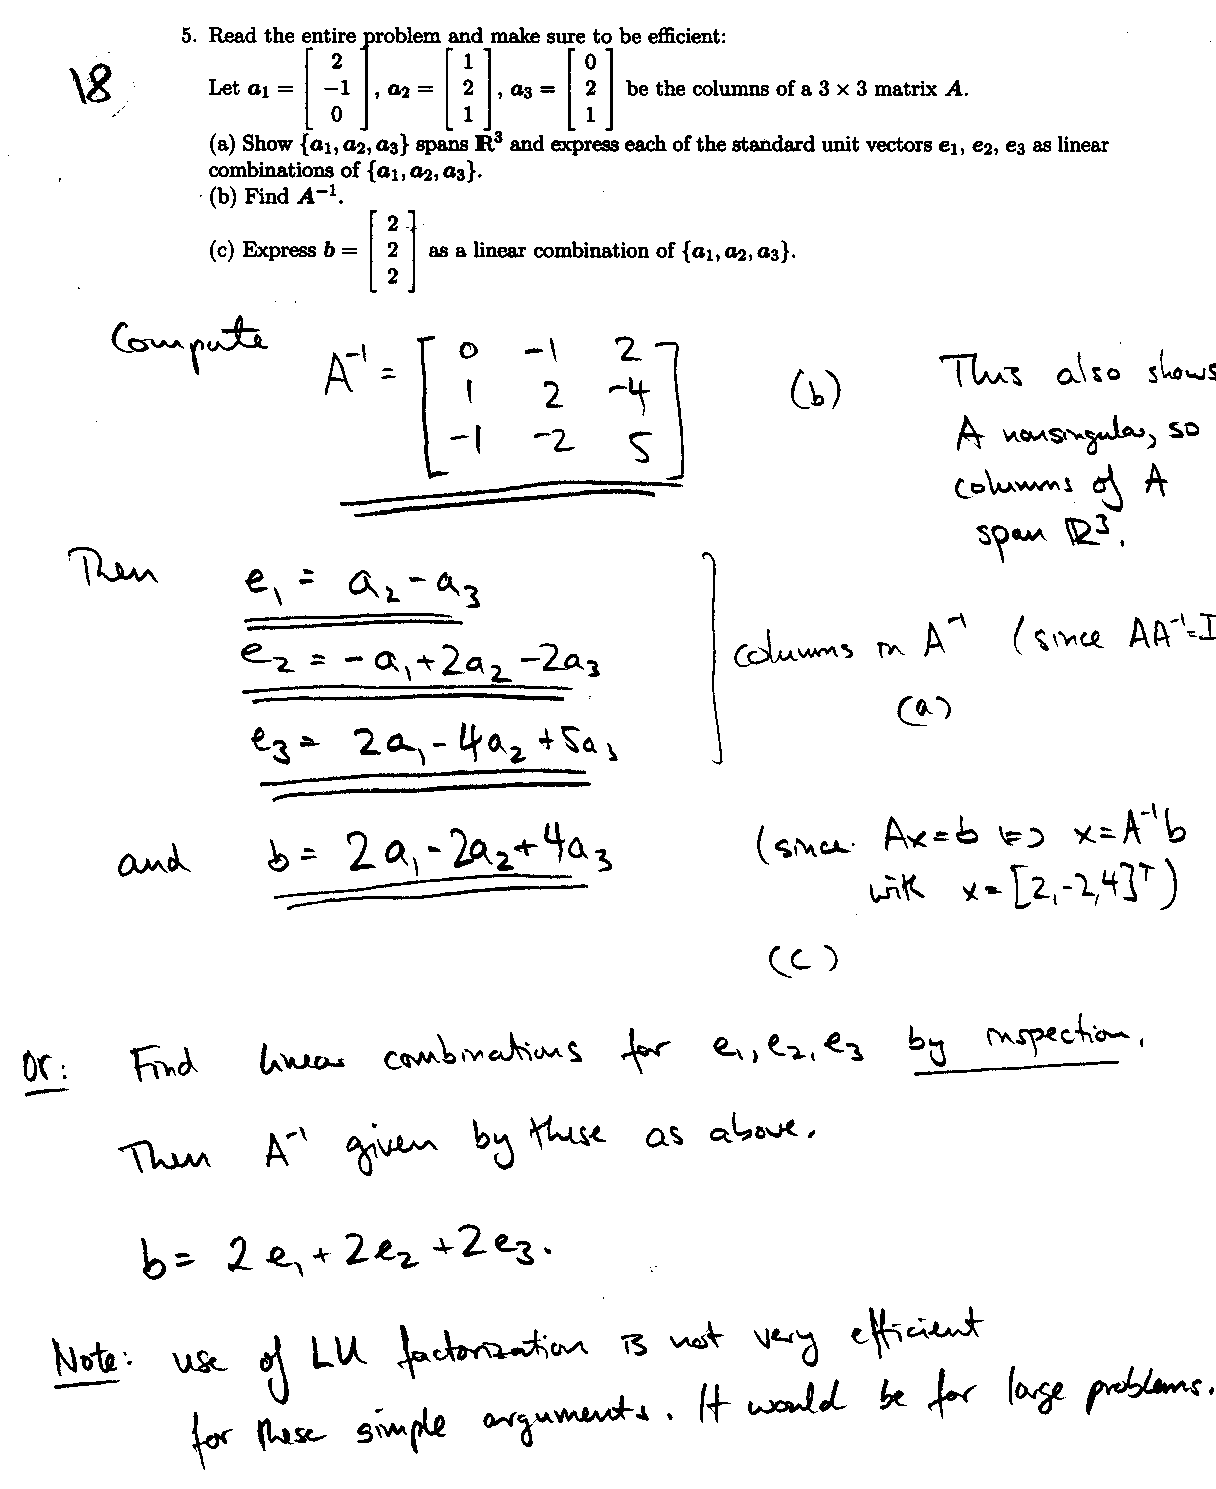 5. Read the entire problem and make sure to be efficient:
18
Let a₁ = [2 -1 0], a₂ = [1 2 1], a₃ = [0 2 1] be the columns of a 3 × 3 matrix A.
(a) Show {a₁, a₂, a₃} spans ℝ³ and express each of the standard unit vectors e₁, e₂, e₃ as linear
combinations of {a₁, a₂, a₃}.
(b) Find A⁻¹.
(c) Express b = [2 2 2] as a linear combination of {a₁, a₂, a₃}.
Compute
A⁻¹ = [0 -1 2
1 2 -4
-1 -2 5]
(b)
This also shows
A nonsingular, so
columns of A
span ℝ³.
Then
e₁ = a₂ - a₃
e₂ = -a₁ + 2a₂ - 2a₃
e₃ = 2a₁ - 4a₂ + 5a₃
columns in A⁻¹ (since AA⁻¹=I
(a)
and b = 2a₁ - 2a₂ + 4a₃
(since Ax=b ⇔ x=A⁻¹b
with x = [2,-2,4]ᵀ)
(c)
Or: Find linear combinations for e₁, e₂, e₃ by inspection.
Then A⁻¹ given by these as above.
b = 2e₁ + 2e₂ + 2e₃.
Note: use of LU factorization is not very efficient
for these simple arguments. It would be for large problems.